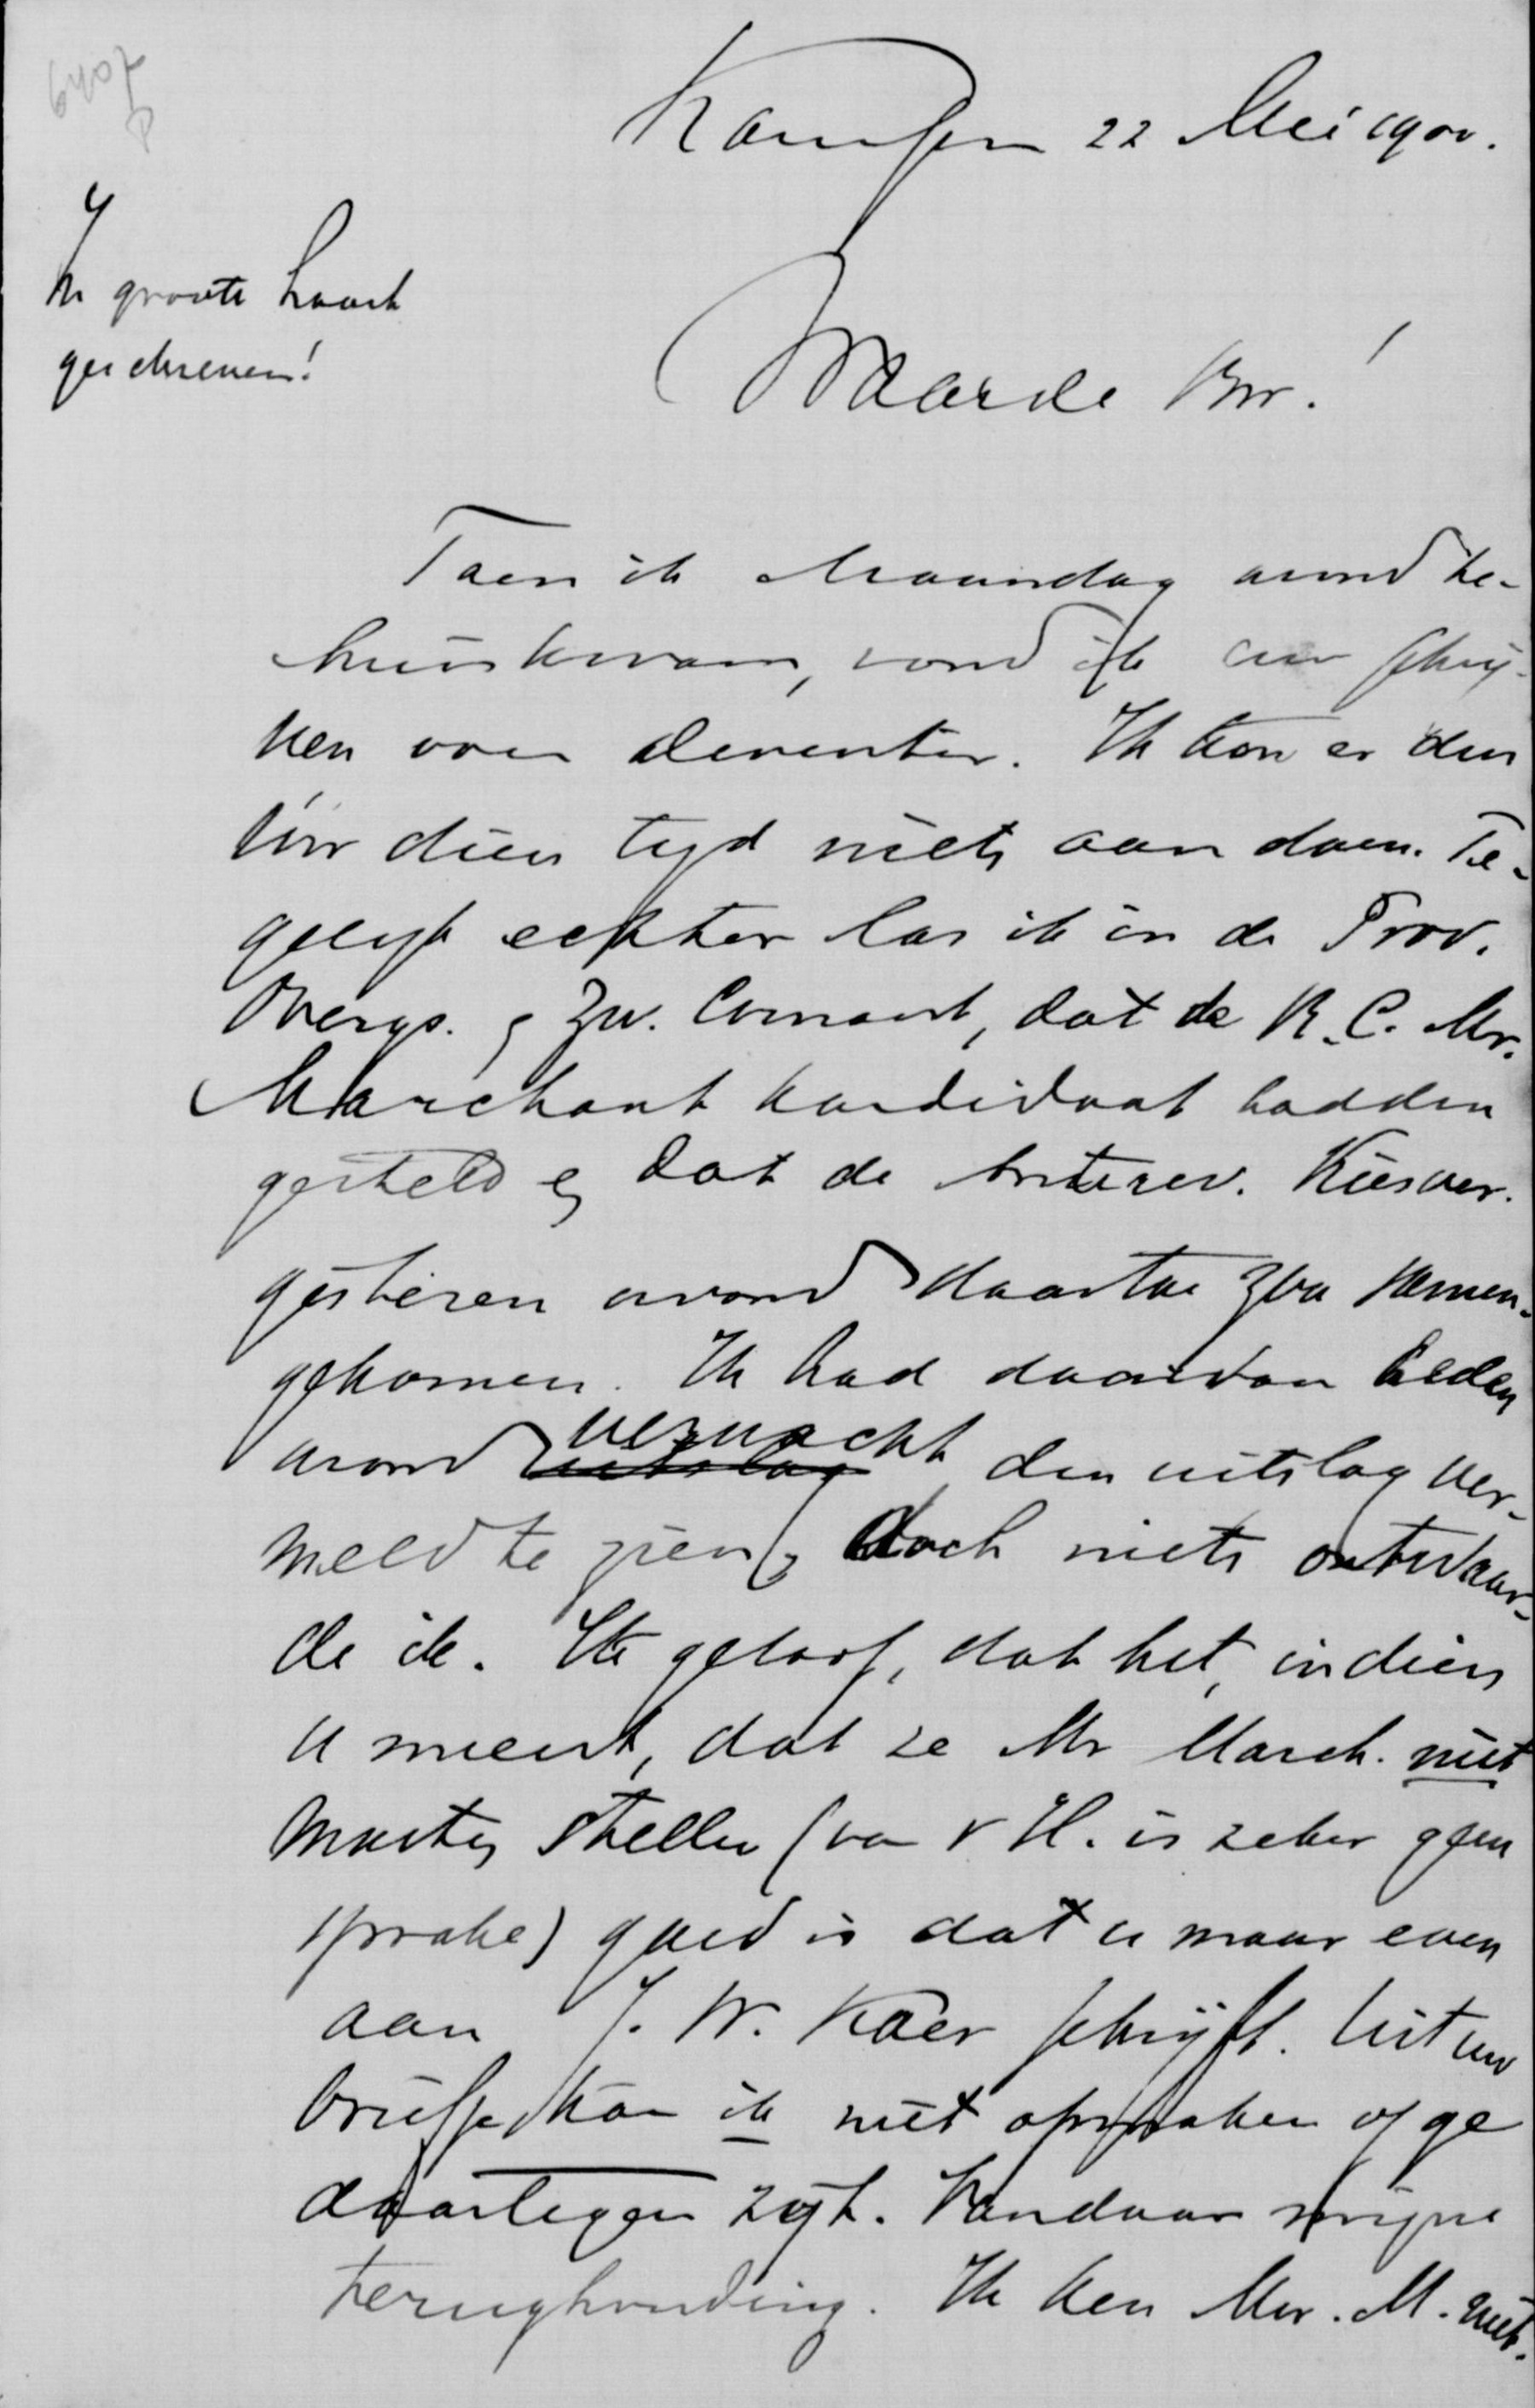 6407
P
Kampen 22 Mei 1900.
In groote haast
geschreven!
Waarde Br.!
Toen ik Maandag avond te-
huis kwam, vond ik uw schrij-
ven over Deventer. Ik kon er dus
vóór dien tyd niets aan doen. Te-
gelijk echter las ik in de Prov.
Overys. & Zw. Courant, dat de R.C. Mr.
Marchant kandidaat hadden
gesteld & dat de Antirev. Kiesver.
gisteren avond daartoe zou samen-
gekomen. Ik had daarvan heden
avond ~~uitslag~~ verwacht den uitslag ver-
meld te zien, doch niets ontwaar-
de ik. Ik geloof, dat het, indien
u meent, dat ze Mr March. niet
moeten stellen (van v H. is zeker geen
sprake) goed is dat u maar even
aan J. W. Kaer schrijft. Uit uw
briefje kon ik niet opmaken of ge
daartegen zyt. Vandaar mijne
terughouding. Ik ken Mr. M. niet.